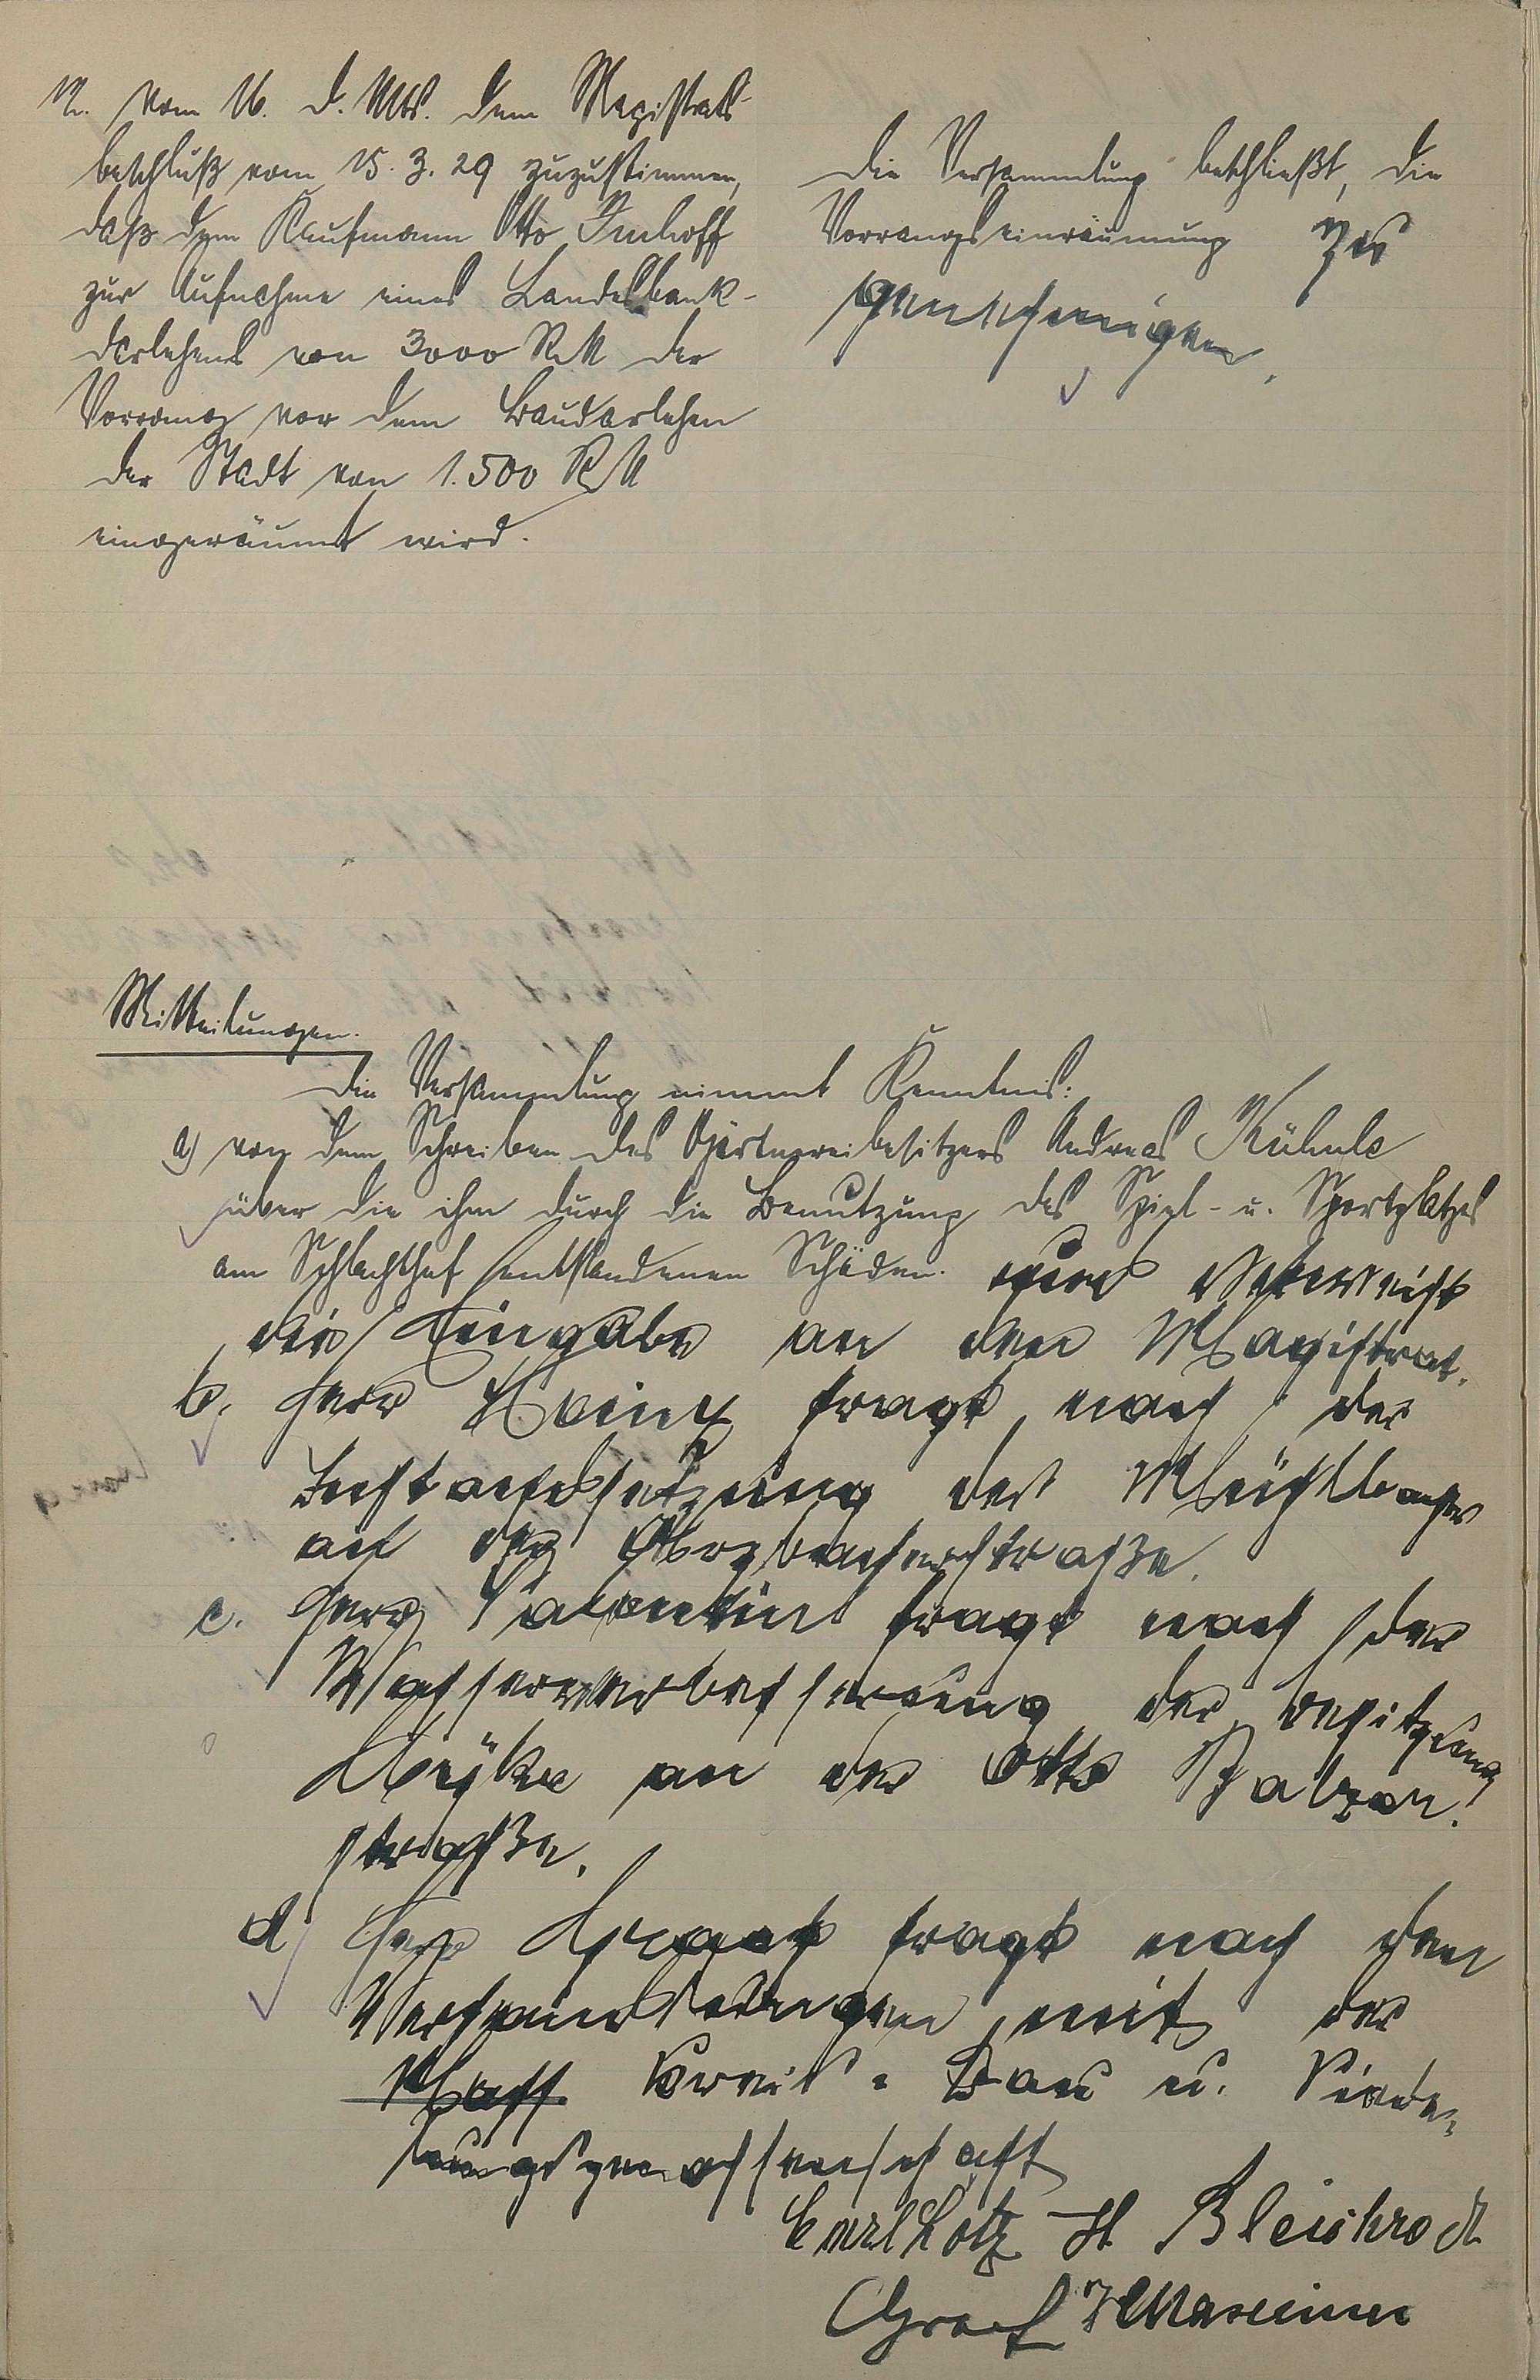 12. vom 16. d. Mts. dem Magistrats-
beschluß vom 15.3.29 zuzustimmen,
daß dem Kaufmann Otto Imhoff
zur Aufnahme eines Landesbank-
darlehens von 3000 RM der
Vorrang vor dem Baudarlehen
der Stadt von 1.500 RM
eingeräumt wird.
Die Versammlung beschließt, die
Vorrangseinräumung zu
genehmigen.
Mitteilungen.
Die Versammlung nimmt Kenntnis:
a) von dem Schreiben des Gärtnereibesitzers Andreas Kühnle
über die ihm durch die Benutzung des Spiel- u. Sportplatzes
am Schlachthof entstandenen Schäden. und überweist
die Eingabe an den Magistrat.
b. Herr Heinz fragt nach der
Instandsetzung des
auf der
c. Herr fragt nach der
Wasserverbesserung der Besitzung
an der Otto
straße.
d Herr fragt nach den
Verhandlungen mit der
Kreis- Bau u. Siede-
lungsgenossenschaft
Carl Lotz H Bleichrodt
Graf